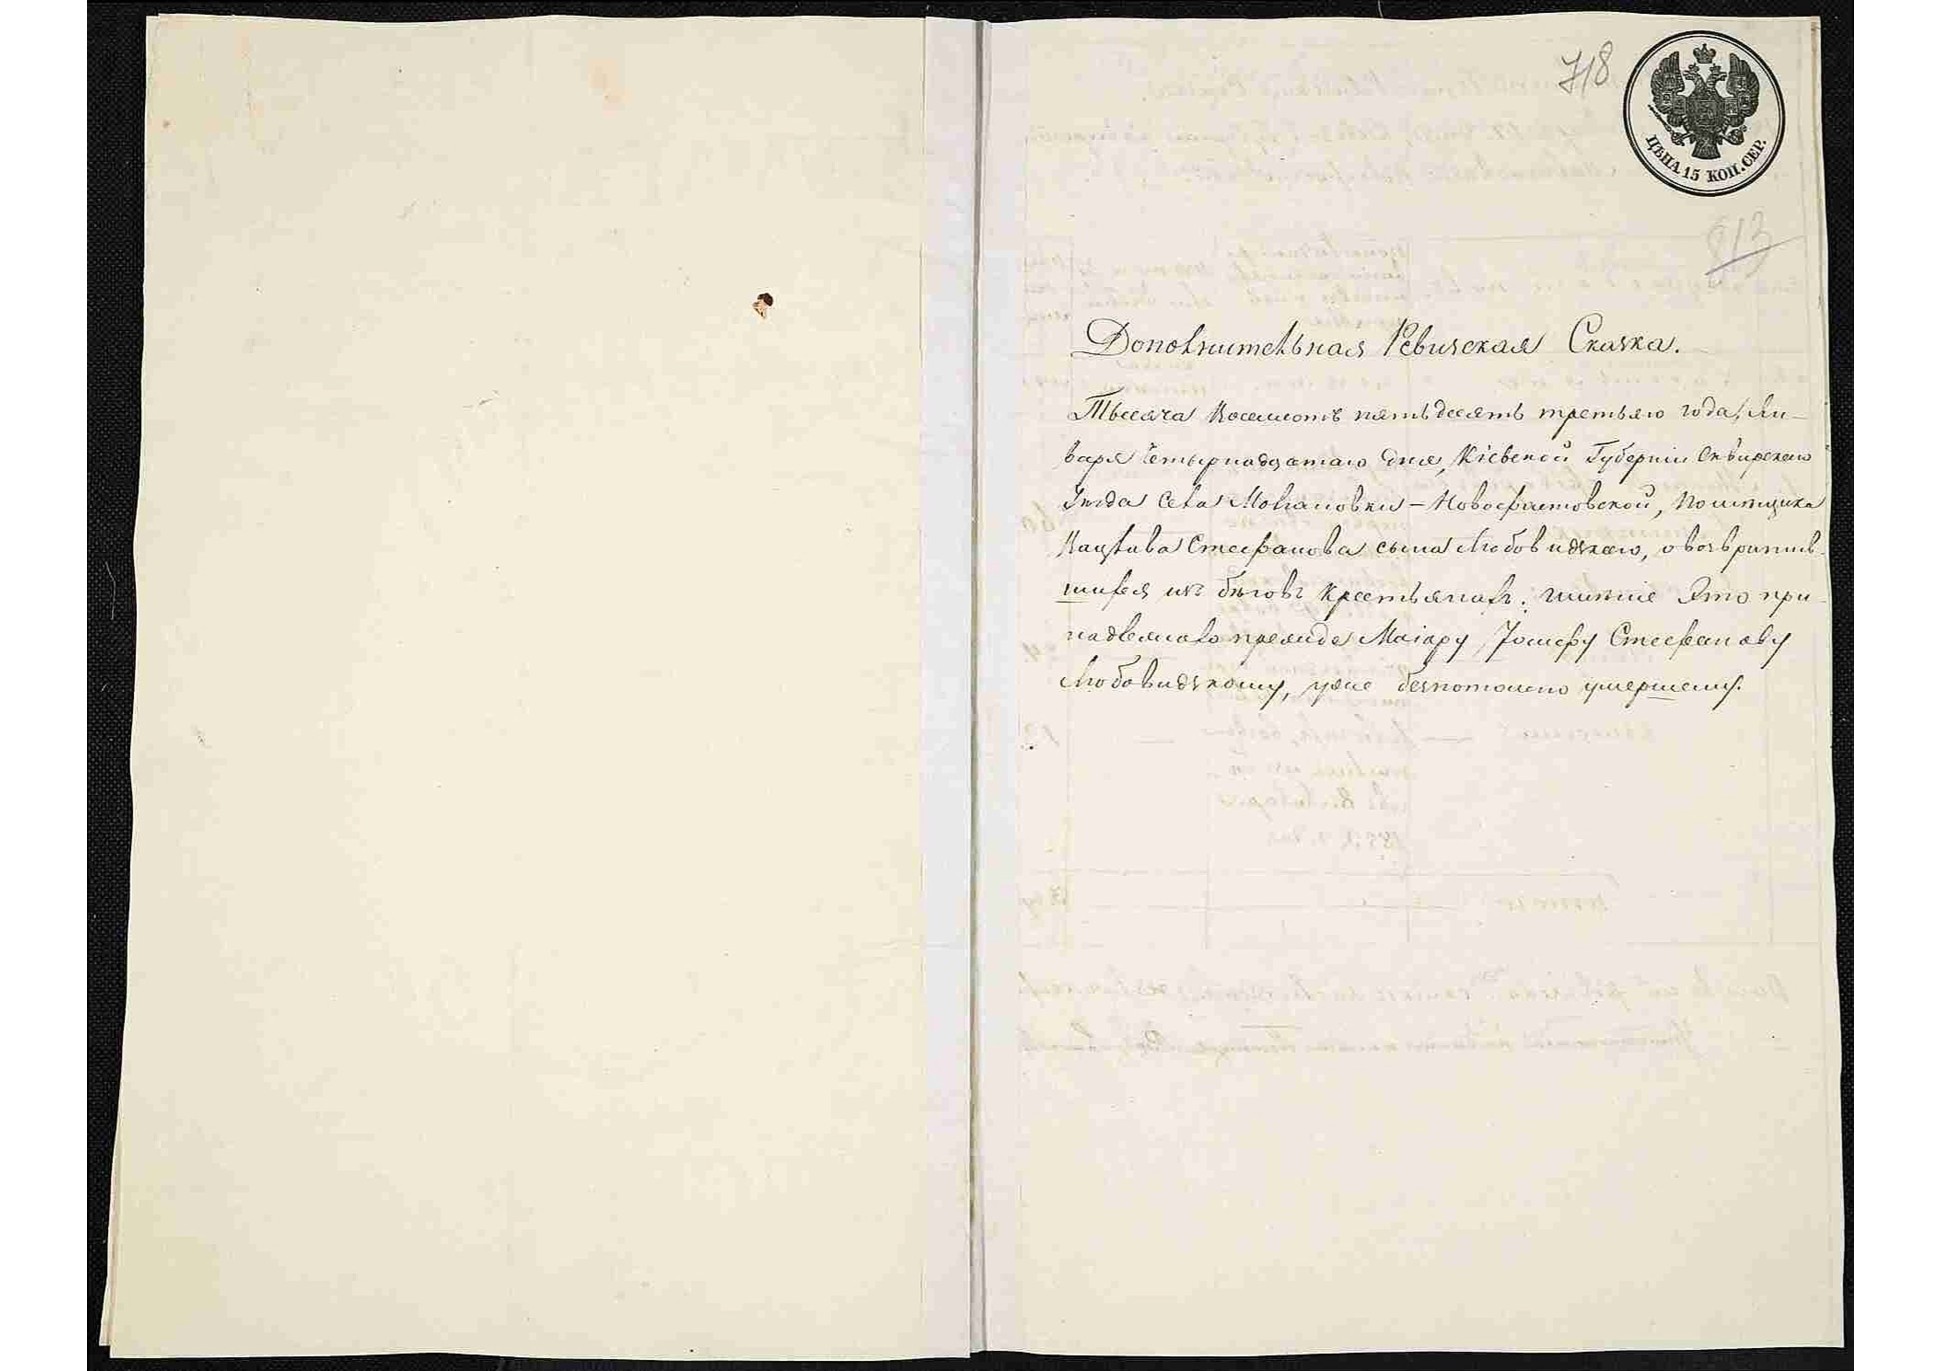 718
ЦѢНА 15 КОП. СЕР.
813
Дополнительная Ревизская Сказка.
Тысяча восемсотъ пятьдесятъ третьяго года, Ян-
варя четырнадцатаго дня, Кіевской Губерніи Сквирскаго
Уѣзда Села Молчановки – Новофастовской, помѣщика
Вацлава Стефанова сына Любовидзкаго, о возвратив-
шихся изъ бѣговъ крестьянахъ; имѣніе это при-
надлежало прежде Маіору Іосифу Стефанову
Любовидзкому, уже безпотомно умершему.